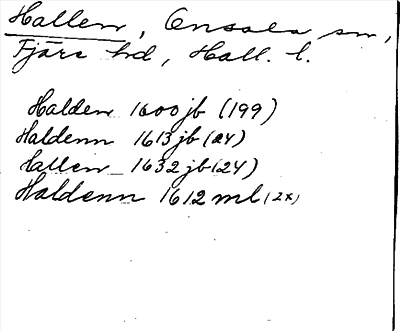 Hallen, Onsala sn,
Fjäre hd, Hall. l.
Halden 1600 jb (199)
Haldenn 1613 jb (24)
Hallen 1632 jb (24)
Haldenn 1612 ml (2x)